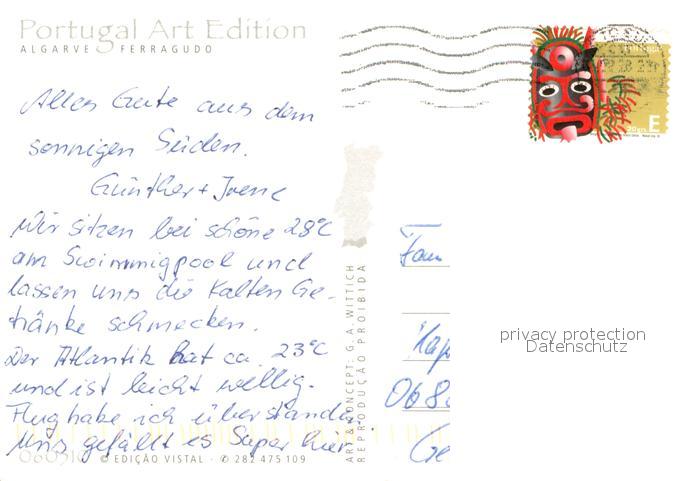 Portugal Art Edition
ALGARVE FERRAGUDO
Alles Gute aus dem
sonnigen Süden.
Günther + Irene
Wir sitzen bei schöne 28°C
am Swimmigpool und
lassen uns die kalten Ge-
tränke schmecken.
Der Atlantik hat ca. 23°C
und ist leicht wellig.
Flug habe ich überstanden.
Uns gefällt es super hier
060510 © EDIÇÃO VISTAL · ✆ 282 475 109
ART & CONCEPT: G.A. WITTICH
REPRODUÇÃO PROIBIDA
E
Fam
068
Ge
privacy protection
Datenschutz